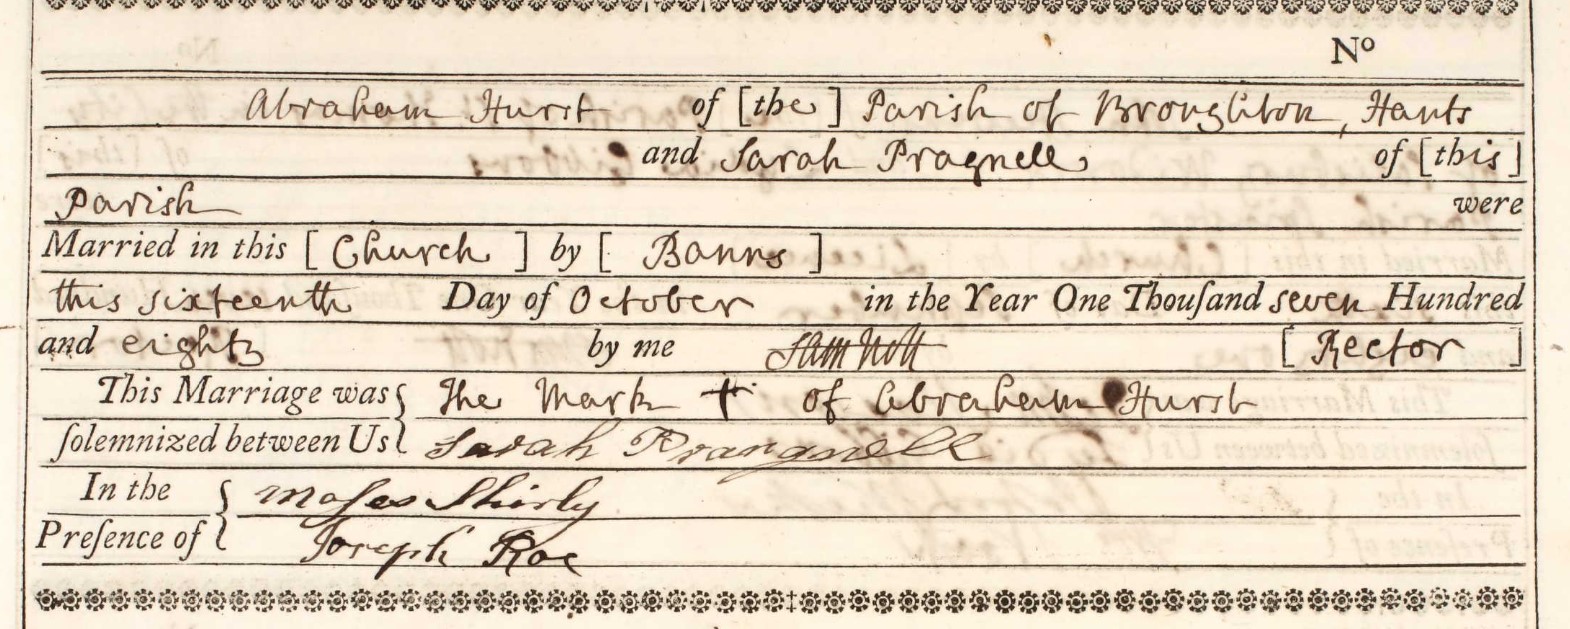 Nº
Abraham Hurst of [the] Parish of Broughton, Hants
and Sarah Pragnell of [this]
Parish were
Married in this [Church] by [Banns]
this sixteenth Day of October in the Year One Thouſand seven Hundred
and eighty by me Sam Nott [Rector]
This Marriage was { The Mark + of Abraham Hurst
ſolemnized between Us { Sarah Prangnell
In the { Moſes Shirly
Preſence of { Joseph Roe